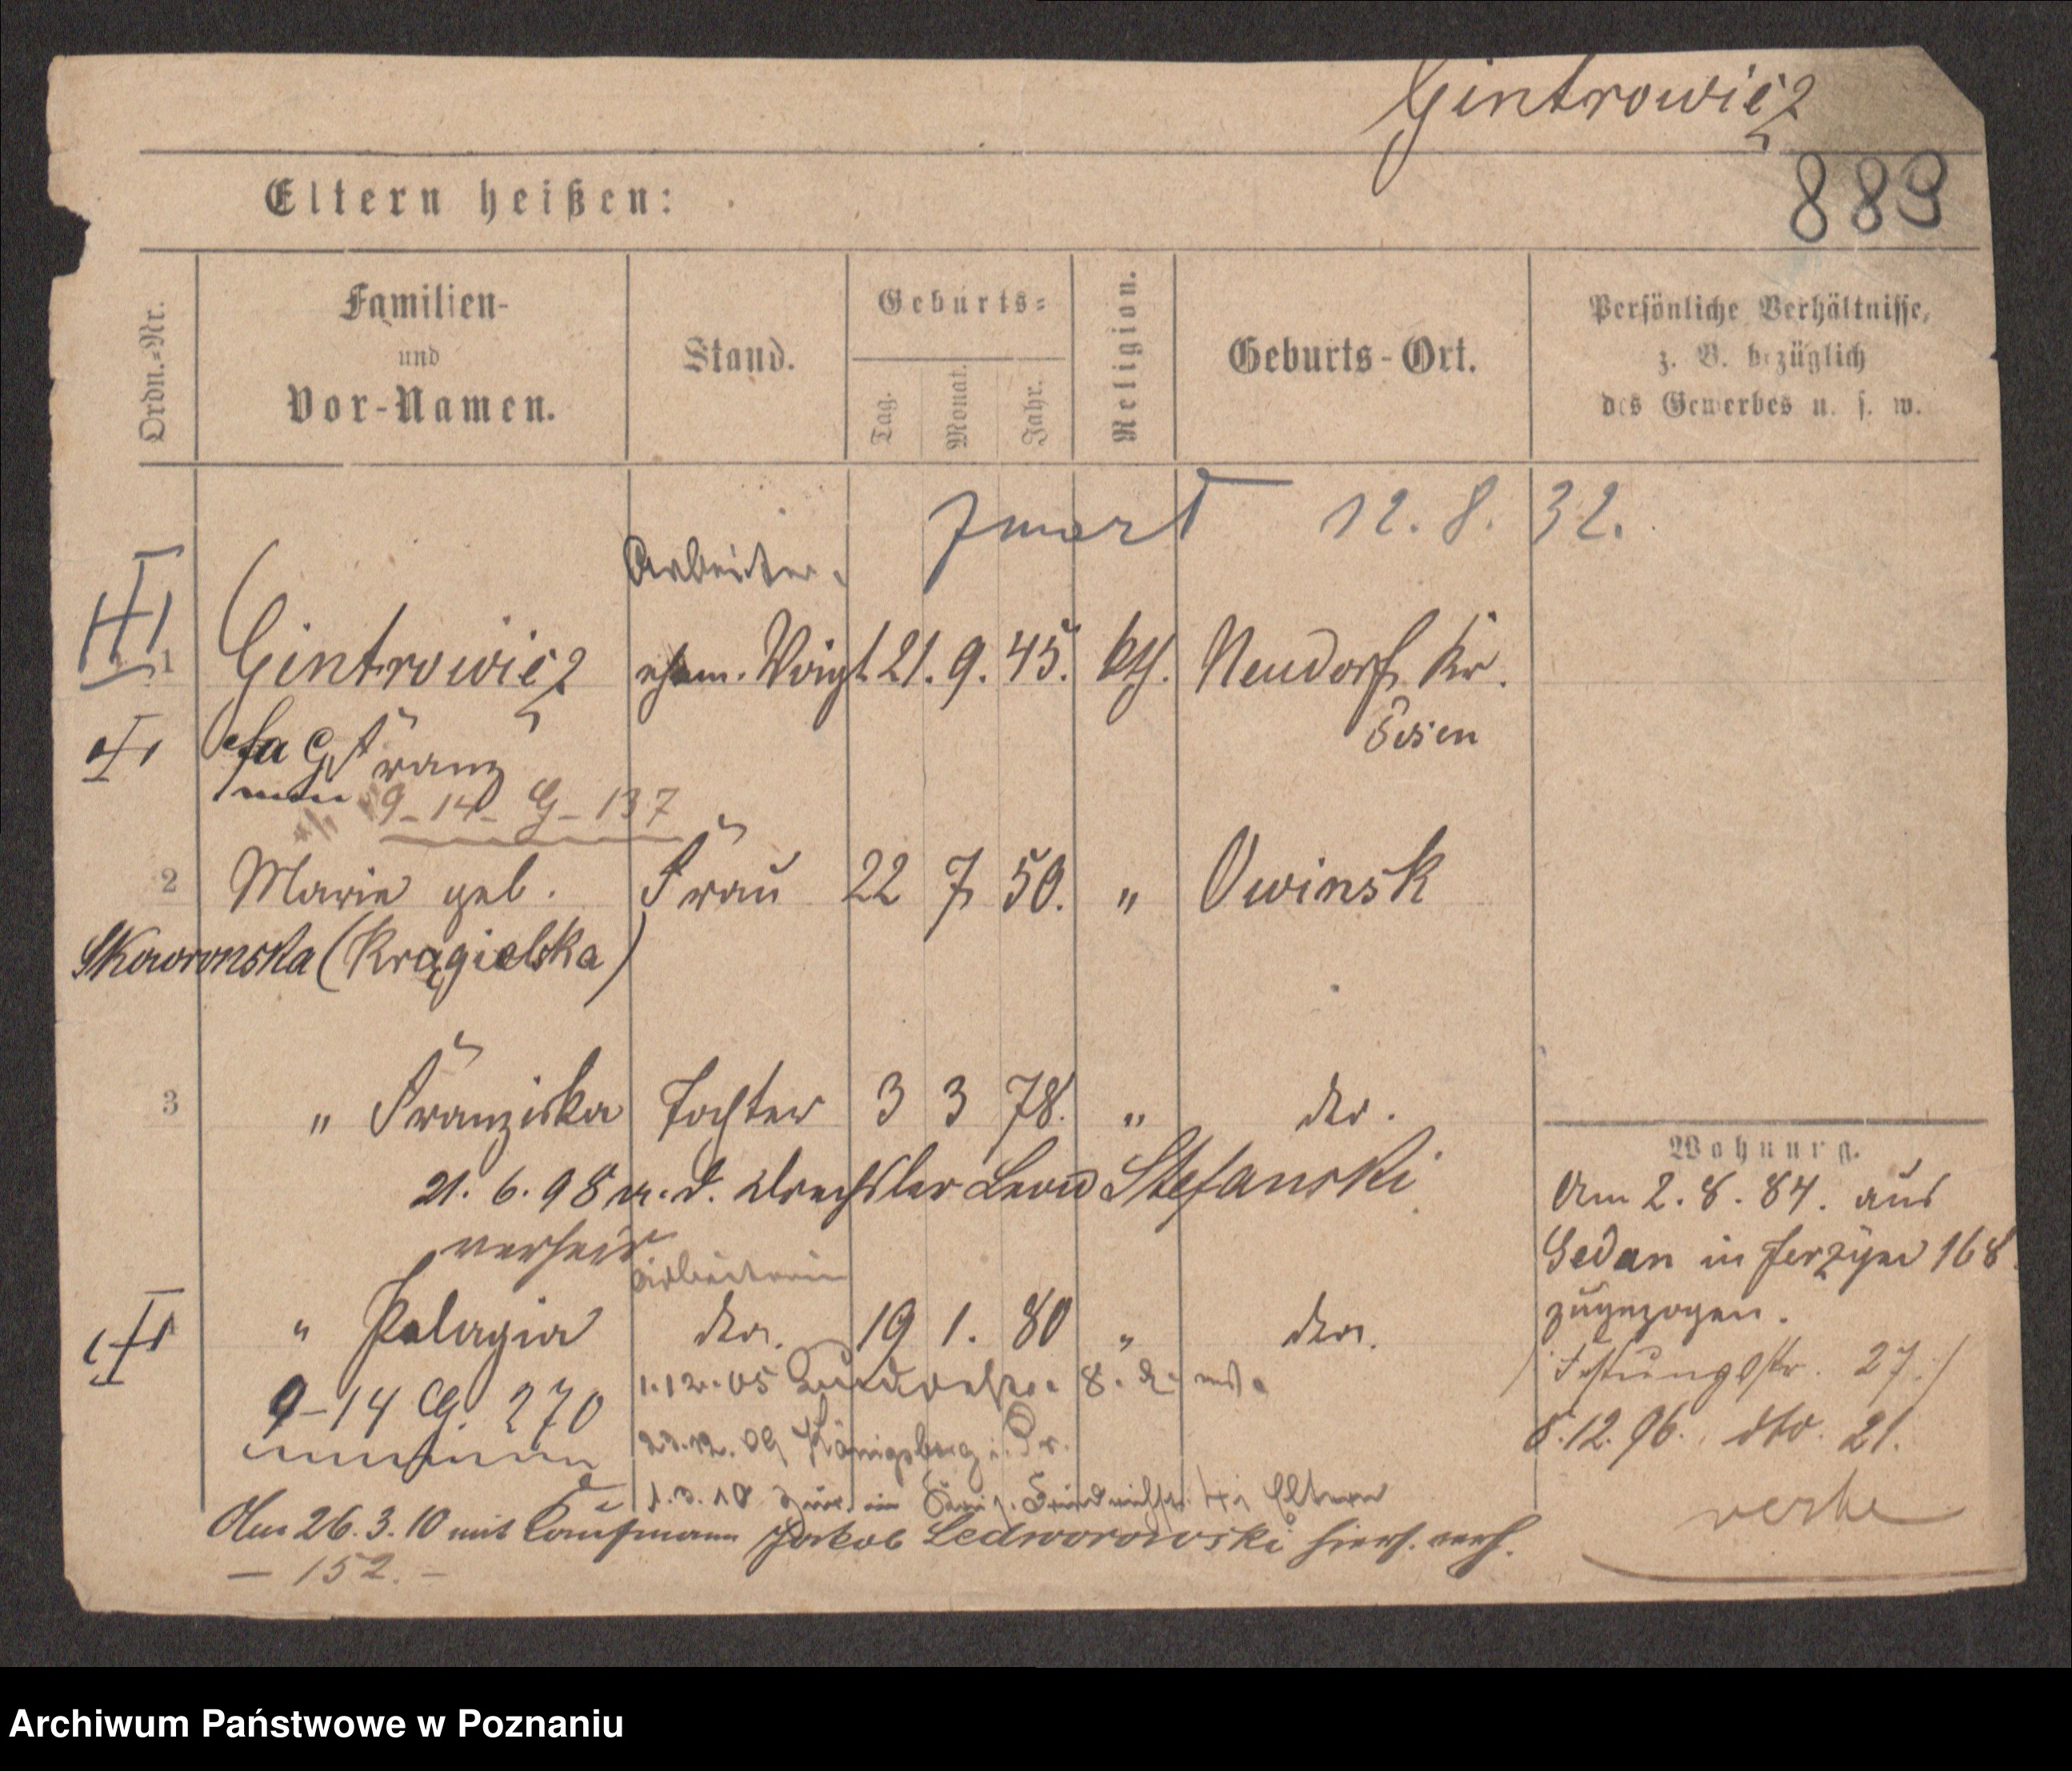 Gintrowicz
883
Eltern heißen:
Ordn.-Nr.
Familien-
und
Vor-Namen.
Stand.
Geburts-
Tag.
Monat.
Jahr.
Religion.
Geburts-Ort.
Persönliche Verhältnisse,
z. B. bezüglich
des Gewerbes u. s. w.
zmarł 12. 8. 32.
Arbeiter
1 Gintrowicz ehem. Voigt 21. 9. 45. kth. Neudorf Kr.
Posen
Franz
9-14- G-137
2 Marie geb. Frau 22 7 50. " Owinsk
Skowronska (Krągielska)
3 " Franziska Tochter 3 3 78. " do.
21. 6. 98 m. d. Drechsler Leon Stefanski
verheir.
Arbeiterin
" Pelagia do. 19 1. 80 " do.
9-14 G. 270
1.12.05 8.
23.12.09 Königsberg i. Pr.
1.3.10 zur. Eltern
Am 26.3.10 mit Kaufmann Jakob Ledworowski hiers. verh.
- 152. -
Wohnung.
Am 2. 8. 84. aus
Gedan in Jerzyce 168
zugezogen.
Festungsstr. 27.
8.12.96. dto. 21.
verte
Archiwum Państwowe w Poznaniu